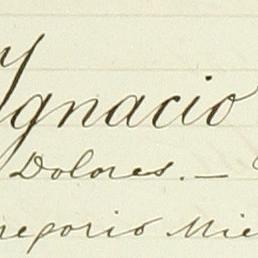 Ignacio
Dolores. —
regorio Mie